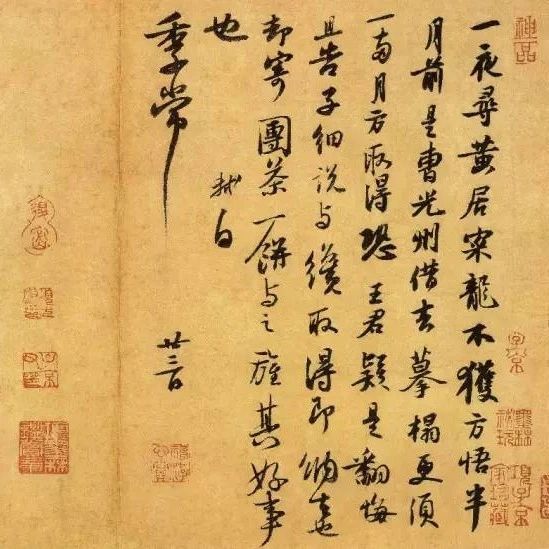 一夜尋黄居寀龍不獲方悟半
月前是曹光州借去摹榻更須
一兩月方取得恐王君疑是翻悔
且告子細說与纔取得即納去也
却寄團茶一餅与之旌其好事
也
軾白
季常
廿三日
神品